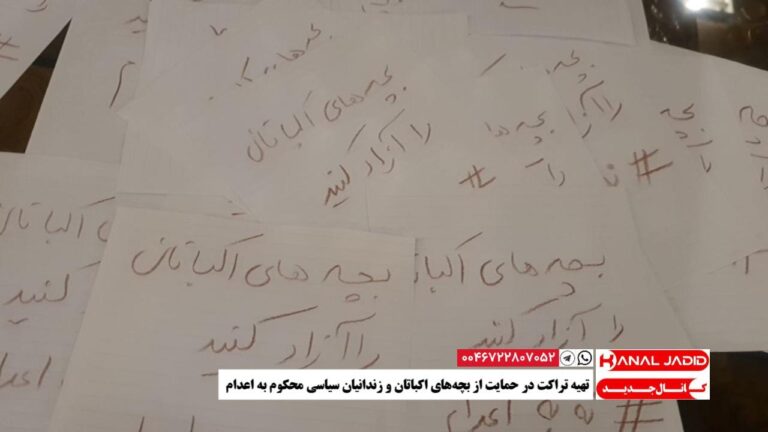 بچه‌ها
بچه های اکباتان
را آزاد کنید
بچه
را آزا
بچه ها
را
#
بچه
#
اکباتان
کنید
اعدا
بچه های اکباتان
را آزاد کنید
بچه های اکبا
را آزاد کنید
# نه به اعدام
۰۰۴۶۷۲۲۸۰۷۰۵۲
KANAL JADID
کانال جدید
تهیه تراکت در حمایت از بچه‌های اکباتان و زندانیان سیاسی محکوم به اعدام